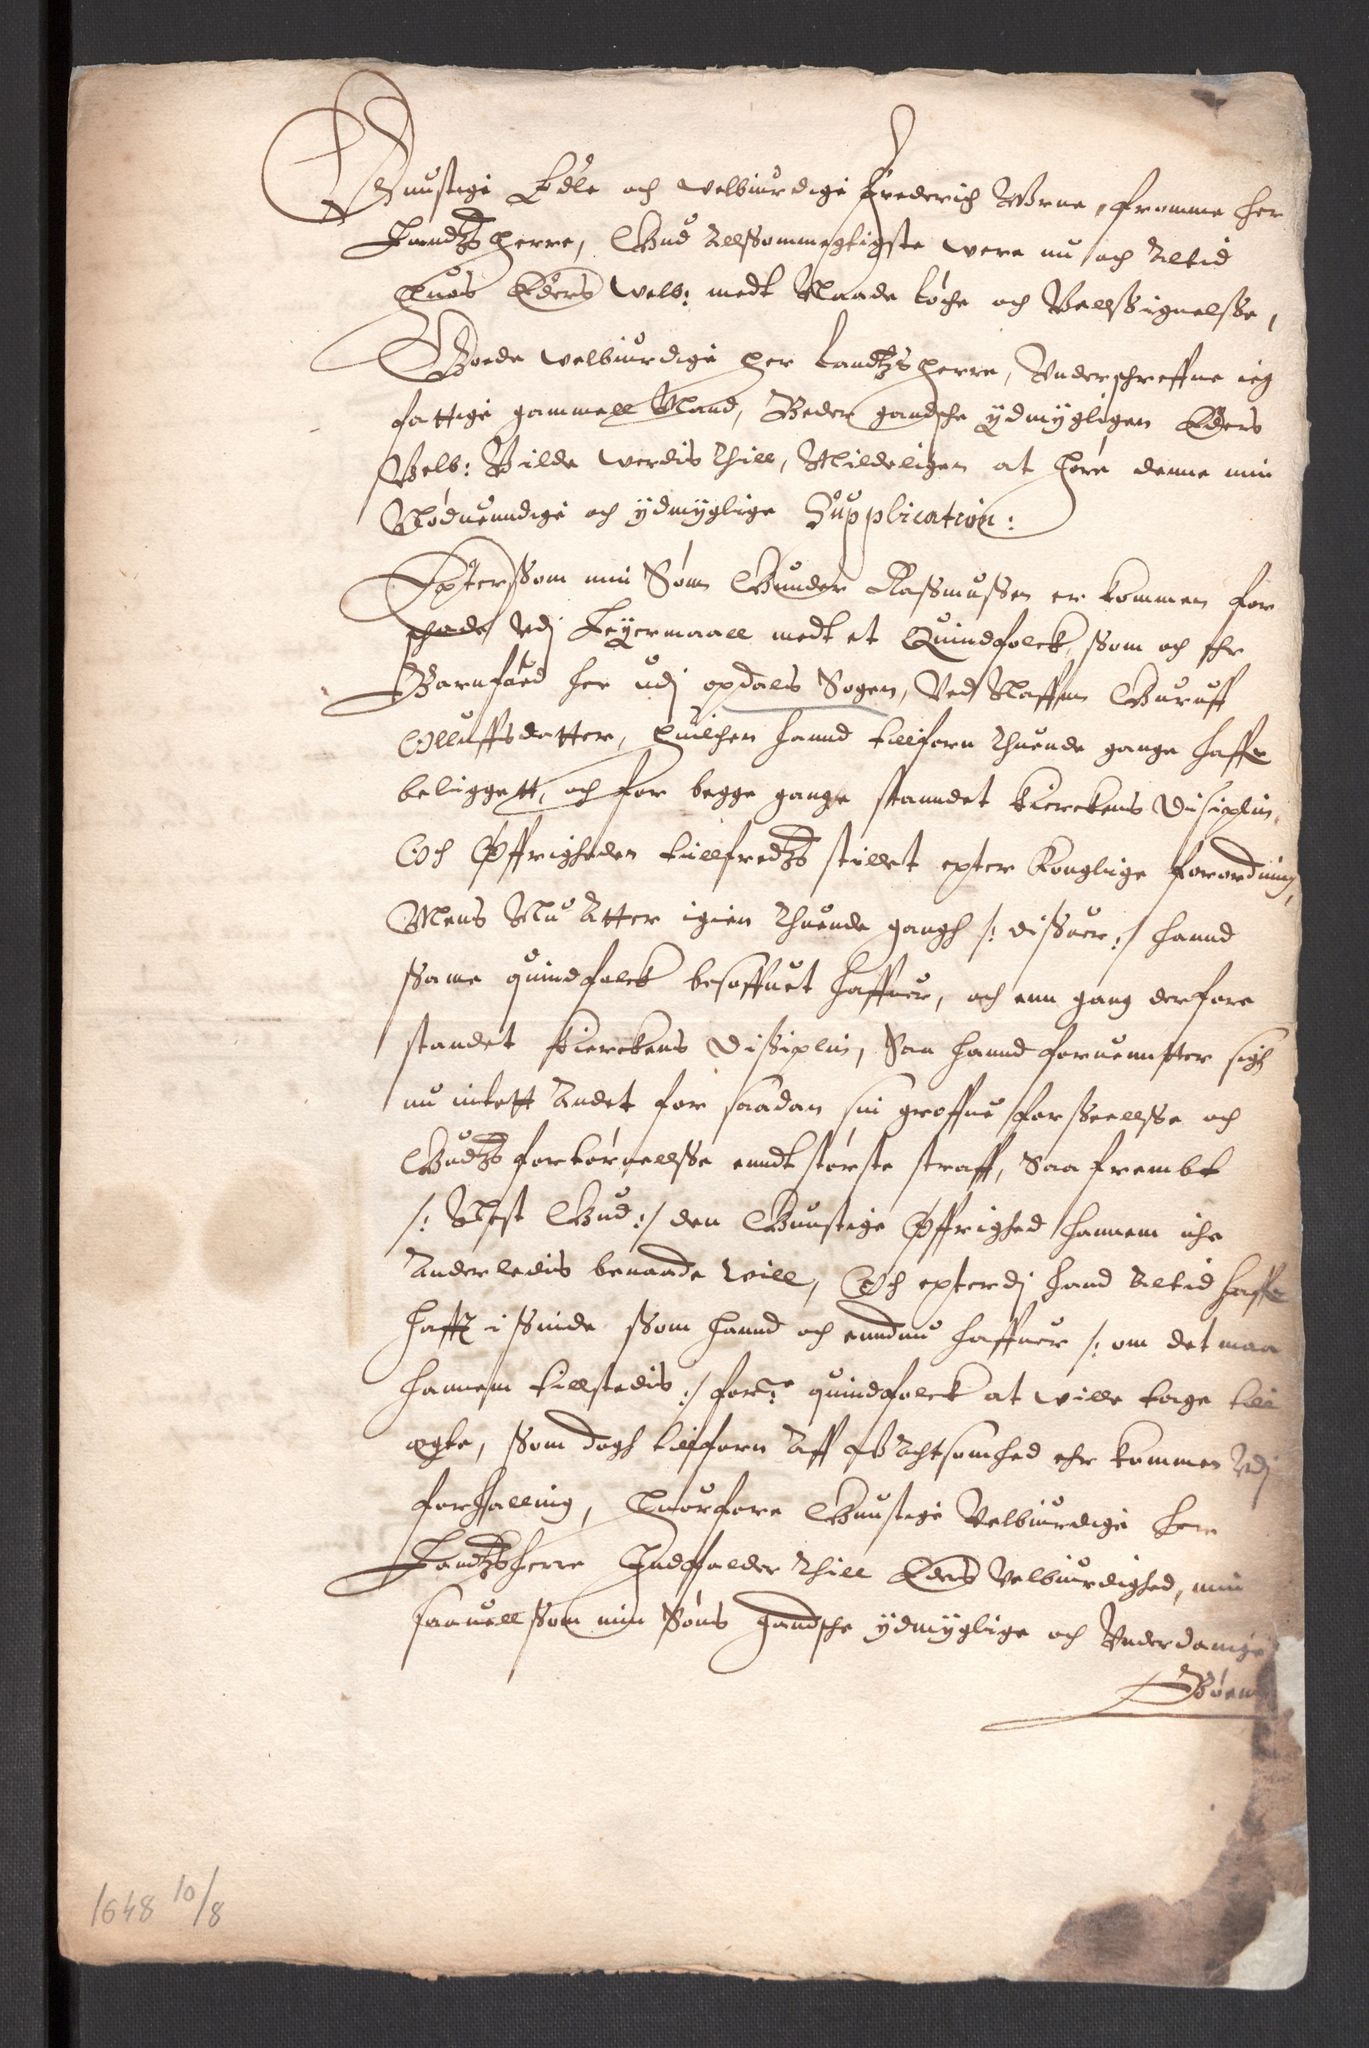 Gunstige Edle och welbiurdige Frederich Wrne, fromme her
Landtzherre, Gud Allsommegtigste were nu och Altid
huos Eders Welb: medt Naade løche och Vellsignelsse,
Goede welbiurdige her Landtzherre, Underschreffne ieg
fattige gammell Mand, Beder gandsche ydmygligen Eders
Welb: Wilde werdis thill, Mildeligen at høre denne min
Nøduendige och ydmyglige Supplication:
Epterssom min Søn Gunder Rassmussen er kommen for
schade udj Leyermaall medt et Quindfolck, ssom och ehr
Barnføed her udj opdals Sogen, Ved Naffn Guruff
Olluffsdatter, huilchen hannd tillforn thuende gange haffr
beliggett, och for begge gange standet kierckens Disiplin.
Och Øffrigheden tillfredtzstillet epter Konglige forordning,
Mens Nu Atter igien thuende gangh /: dissuer :/ hannd
ssame quindfolck besoffuet haffuer, och enn gang derfore
standet kierckens Disiplin, Saa hannd foruennter sigh
nu intett Andet for saadan sin groffue forsseellsse och
Gudtz fortørnellsse enndt største straff, Saa frembt
/: Nest Gud :/ den Gunstige Øffrighed hannem iche
Anderledis benaade will, Och epterdj hand Altid haffr
hafft i ssinde ssom hannd och enndnu haffuer /: om det maa
hannem tillstedis :/ forne: quindfolck at wille tage till
egte, ssom dogh tillforn Aff Uachtsomhed ehr kommen udj
forhalling, huorfore Gunstige Velbiurdige her
Landtzherre Indfalder thill Eders Velbiurdighed, min
saauell ssom min Søns gandsche ydmyglige och Underdanige
Bøenn
1648 10/8